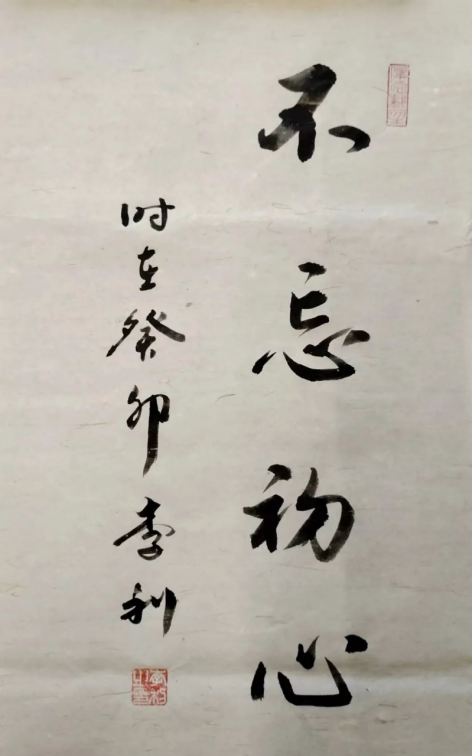 不忘初心
时在癸卯李利